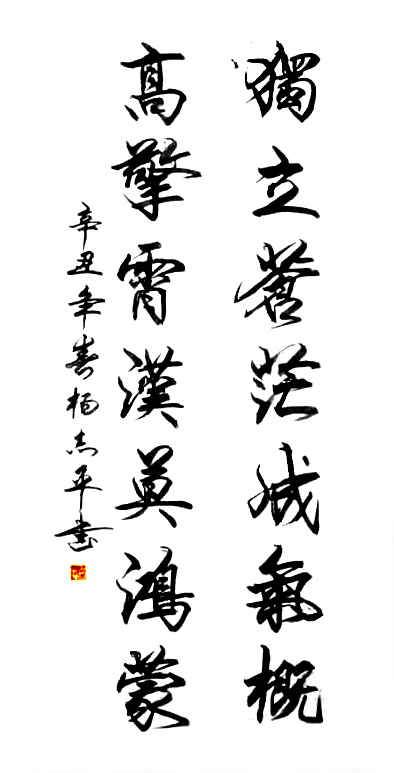 獨立蒼茫成氣概
高擎霄漢奠鴻蒙
辛丑年春楊志平書